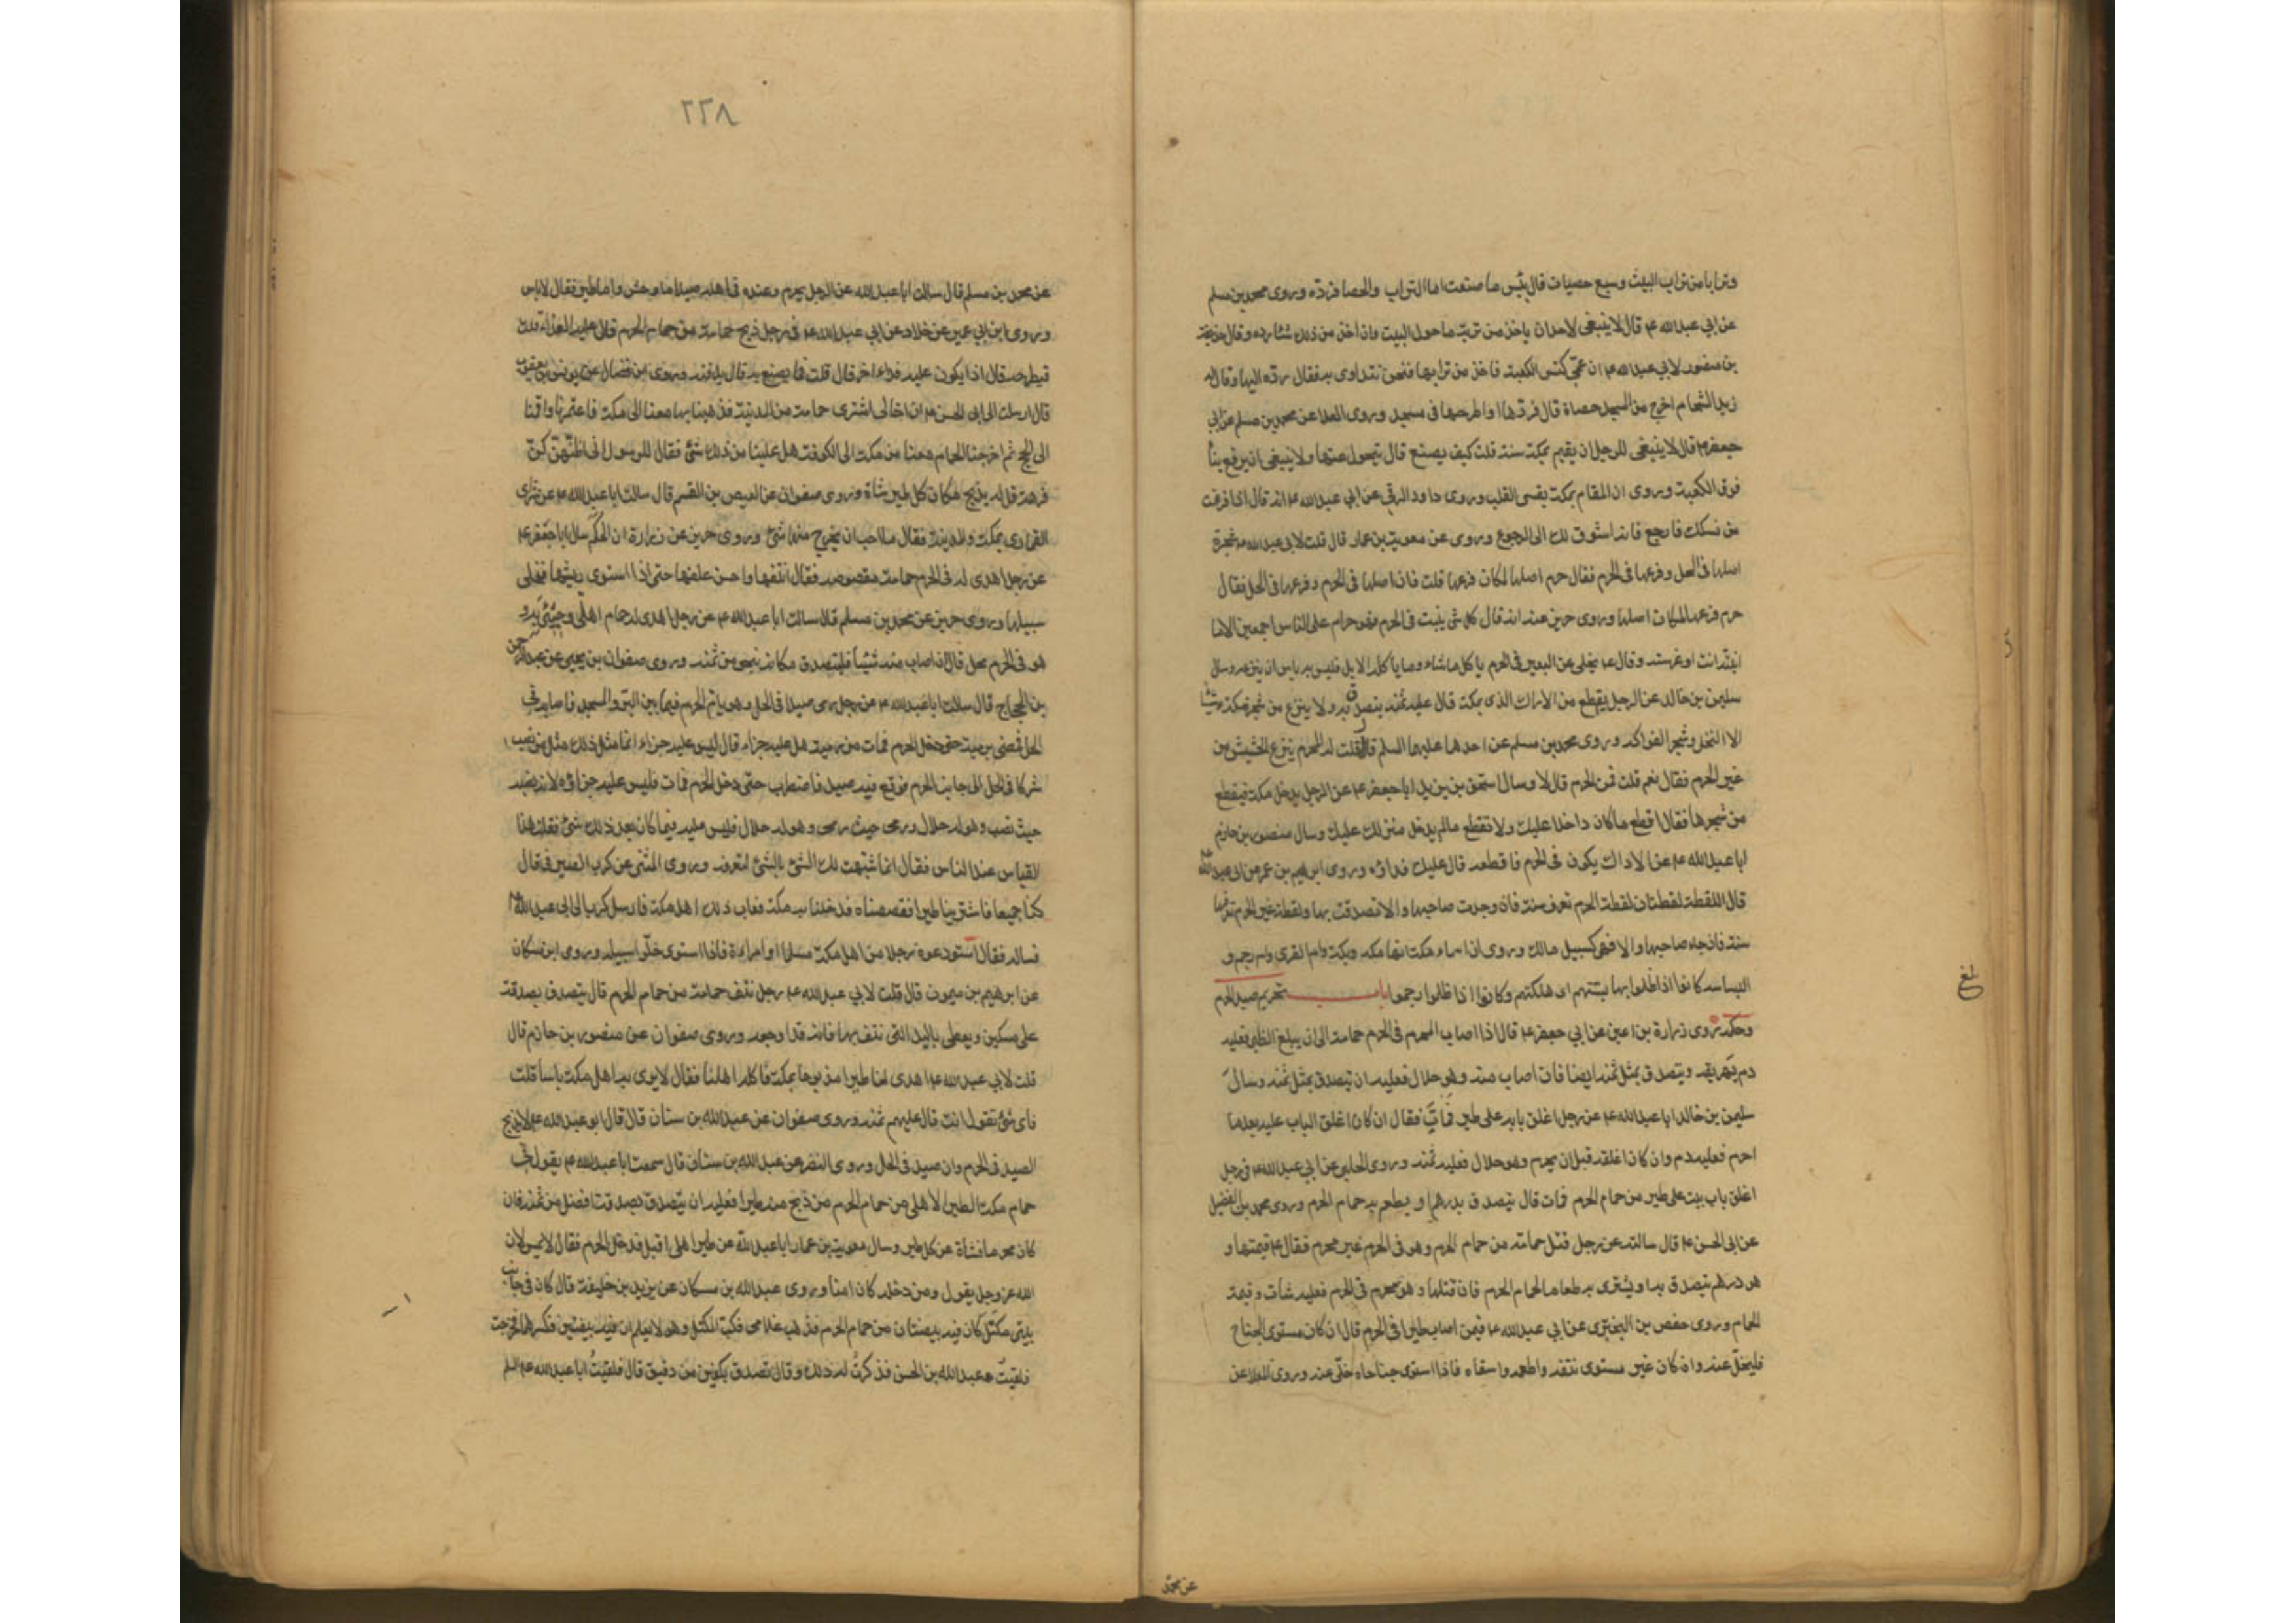 وترابا من تراب البيت وسبع حصيات قال بئس ما صنعت اما التراب والحصا فردّه وروى محمد بن مسلم
عن ابي عبد الله ع قال لا ينبغي لاحد ان ياخذ من تربة ما حول البيت وان اخذ من ذلك شيئا رده وقال حذيفة
بن منصور لابي عبد الله ع ان عمّي كنس الكعبة فاخذ من ترابها فنحن نتداوى به فقال ردّه اليها وقال له
زيد الشحام اخرج من المسجد حصاة قال فردّها او اطرحها في مسجد وروى العلا عن محمد بن مسلم عن ابي
جعفر ع قال لا ينبغي للرجل ان يقيم بمكة سنة قلت كيف يصنع قال يتحول عنها ولا ينبغي ان يرفع بناً
فوق الكعبة وروى ان المقام بمكة يقسي القلب وروى داود الرقي عن ابي عبد الله ع انه قال اذا فرغت
من نسكك فارجع فانه اشوق لك الى الرجوع وروى عن معوية بن عمار قال قلت لابي عبد الله ع شجرة
اصلها في الحل وفرعها في الحرم فقال حرم اصلها لمكان فرعها قلت فان اصلها في الحرم وفرعها في الحل فقال
حرم فرعها لمكان اصلها وروى حريز عنه انه قال كل شئ ينبت في الحرم فهو حرام على الناس اجمعين الا ما
انبتّه انت او غرسته وقال ع يخلى عن البعير في الحرم ياكل ما شاء وما ياكله الابل فليس به باس ان ينزعه وسال
سليمن بن خالد عن الرجل يقطع من الاراك الذي بمكة قال عليه ثمنه يتصدق به ولا ينزع من شجر مكة شيئا
الا النخل وشجر الفواكه وروى محمد بن مسلم عن احدهما عليهما السلم قال قلت له المحرم ينزع الحشيش من
غير الحرم فقال نعم قلت فمن الحرم قال لا وسال اسحق بن يزيد ابا جعفر ع عن الرجل يدخل مكة فيقطع
من شجرها فقال اقطع ما كان داخلا عليك ولا تقطع مالم يدخل منزلك عليك وسال منصور بن حازم
ابا عبد الله ع عن الاراك يكون في الحرم فاقطعه قال عليك فداؤه وروى ابراهيم بن عمر عن ابي عبد الله
قال اللقطة لقطتان لقطة الحرم تعرف سنة فان وجدت صاحبها والا تصدقت بها ولقطة غير الحرم تعرفها
سنة فان جاء صاحبها والا فهي كسبيل مالك وروى ان اسماء مكة انها مكة وبكة وام القرى وام رحم و
البساسة كانوا اذا ظلموا بها بستهم اى هلكتهم وكانوا اذا ظلموا رحموا باب تحريم صيد الحرم
وحكمه روى زرارة بن اعين عن ابي جعفر ع قال اذا اصاب المحرم في الحرم حمامة الى ان يبلغ الظبي فعليه
دم يهريقه ويتصدق بمثل ثمنه ايضا فان اصاب منه وهو حلال فعليه ان يتصدق بمثل ثمنه وسال
سليمن بن خالد ابا عبد الله ع عن رجل اغلق بابه على طير فمات فقال ان كان اغلق الباب عليه بعد ما
احرم فعليه دم وان كان اغلقه قبل ان يحرم وهو حلال فعليه ثمنه وروى الحلبي عن ابي عبد الله ع في رجل
اغلق باب بيت على طير من حمام الحرم فمات قال يتصدق بدرهم او يطعم به حمام الحرم وروى محمد بن الفضيل
عن ابي الحسن ع قال سالته عن رجل قتل حمامة من حمام الحرم وهو في الحرم غير محرم فقال ع قيمتها و
هو درهم يتصدق به او يشترى به طعاما لحمام الحرم فان قتلها وهو محرم في الحرم فعليه شاة وقيمة
الحمام وروى حفص بن البختري عن ابي عبد الله ع فيمن اصاب طيرا في الحرم قال ان كان مستوى الجناح
فليخلّ عنه وان كان غير مستوى نتفه واطعمه واسقاه فاذا استوى جناحاه خلّى عنه وروى العلا عن
عن محمد
٢٢٨
عن محمد بن مسلم قال سالت ابا عبد الله عن الرجل يحرم وعنده في اهله صيد اما وحش واما طير فقال لا باس
وروى ابن ابي عمير عن خلاد عن ابي عبد الله ع في رجل ذبح حمامة من حمام الحرم قال عليه الفداء قلت
فيطرحه قال اذا يكون عليه فداء اخر قال قلت فما يصنع به قال يدفنه وروى ابن فضال عن يونس بن يعقوب
قال ارسلت الى ابي الحسن ع ان اخا لى اشترى حمامة من المدينة فذهبنا بها معنا الى مكة فاعتمرنا واقمنا
الى الحج ثم اخرجنا الحمام معنا من مكة الى الكوفة هل علينا من ذلك شئ فقال للرسول انى اظنّهنّ كنّ
فرهة قل له يذبح مكان كل طير شاة وروى صفوان عن العيص بن القسم قال سالت ابا عبد الله ع عن شرى
القمارى بمكة والمدينة فقال ما احب ان يخرج منها شئ وروى حريز عن زرارة ان الحكم سال ابا جعفر ع
عن رجل اهدى له في الحرم حمامة مقصوصة فقال انتفها واحسن علفها حتى اذا استوى ريشها فخلى
سبيلها وروى حريز عن محمد بن مسلم قال سالت ابا عبد الله ع عن رجل اهدى له حمام اهلي وجئ به و
هو في الحرم محل قال ان اصاب منه شيئا فليتصدق مكانه بنحو من ثمنه وروى صفوان بن يحيى عن عبد الرحمن
بن الحجاج قال سالت ابا عبد الله ع عن رجل رمى صيدا في الحل وهو يؤم الحرم فيما بين البريد والمسجد فاصابه في
الحل فمضى برميته حتى دخل الحرم فمات من رميته هل عليه جزاء قال ليس عليه جزاء انما مثل ذلك مثل من نصب
شركا في الحل الى جانب الحرم فوقع فيه صيد فاضطرب حتى دخل الحرم فمات فليس عليه جزاؤه لانه نصبه
حيث نصب وهو له حلال ورمى حيث رمى وهو له حلال فليس عليه فيما كان بعد ذلك شئ فقلت هذا
القياس عند الناس فقال انما شبّهت لك الشئ بالشئ لتعرفه وروى المثنى عن كرب الصيرفي قال
كنا جميعا فاشترينا طيرا فقصصناه فدخلنا به مكة فعاب ذلك اهل مكة فارسل كرب الى ابي عبد الله ع
فساله فقال استودعوه رجلا من اهل مكة مسلما او امراءة فاذا استوى خلّوا سبيله وروى ابن مسكان
عن ابرهيم بن ميمون قال قلت لابي عبد الله ع رجل نتف حمامة من حمام الحرم قال يتصدق بصدقة
على مسكين ويعطى باليد التي نتف بها فانه قد اوجعه وروى صفوان عن منصور بن حازم قال
قلت لابي عبد الله ع اهدى لنا طيرا مذبوحا بمكة فاكله اهلنا فقال لا يرى به اهل مكة باسا قلت
فاى شئ تقول انت قال عليهم ثمنه وروى صفوان عن عبد الله بن سنان قال قال ابو عبد الله ع لا يذبح
الصيد في الحرم وان صيد في الحل وروى النضر عن عبد الله بن سنان قال سمعت ابا عبد الله ع يقول في
حمام مكة الطير الاهلي من حمام الحرم من ذبح منه طيرا فعليه ان يتصدق بصدقة افضل من ثمنه فان
كان محرما فشاة عن كل طير وسال معوية بن عمار ابا عبد الله عن طير اهلي اقبل فدخل الحرم فقال لا يمس لان
الله عز وجل يقول ومن دخله كان امنا وروى عبد الله بن مسكان عن يزيد بن خليفة قال كان في جانب
بيتي مكتل كان فيه بيضتان من حمام الحرم فذهب غلامى فكبّ المكتل وهو لا يعلم ان فيه بيضتين فكسرهما فخرجت
فلقيت عبد الله بن الحسن فذكرت له ذلك وقال تصدق بكفين من دقيق قال فلقيت ابا عبد الله ع